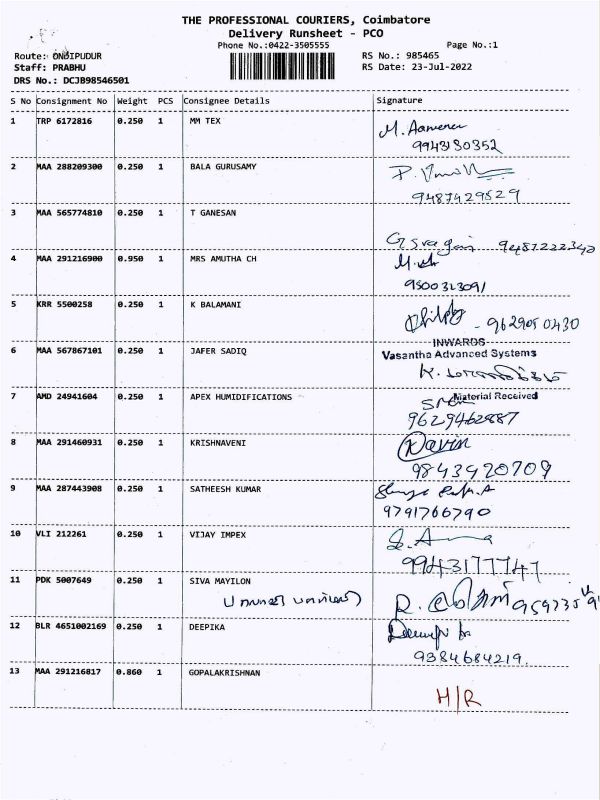 THE PROFESSIONAL COURIERS, Coimbatore
Delivery Runsheet - PCO
Phone No.:0422-3505555 Page No.:1
Route: ONDIPUDUR RS No.: 985465
Staff: PRABHU RS Date: 23-Jul-2022
DRS No.: DCJB98546501
S No Consignment No Weight PCS Consignee Details Signature
1 TRP 6172816 0.250 1 MM TEX
9943130352
2 MAA 288209300 0.250 1 BALA GURUSAMY
9487429529
3 MAA 565774810 0.250 1 T GANESAN
9487222342
4 MAA 291216900 0.950 1 MRS AMUTHA CH
9500323091
5 KRR 5500258 0.250 1 K BALAMANI
- 9629050430
6 MAA 567867101 0.250 1 JAFER SADIQ
INWARDS
Vasantha Advanced Systems
7 AMD 24941604 0.250 1 APEX HUMIDIFICATIONS
Material Received
9629462887
8 MAA 291460931 0.250 1 KRISHNAVENI
Navin
9843420709
9 MAA 287443908 0.250 1 SATHEESH KUMAR
9791766790
10 VLI 212261 0.250 1 VIJAY IMPEX
9943177747
11 PDK 5007649 0.250 1 SIVA MAYILON
12 BLR 4651002169 0.250 1 DEEPIKA
9384684219
13 MAA 291216817 0.860 1 GOPALAKRISHNAN
H/R